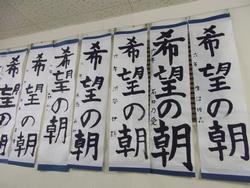 希望の朝
希望の朝
希望の朝
希望の朝
希望の朝
希望の朝
希望の朝